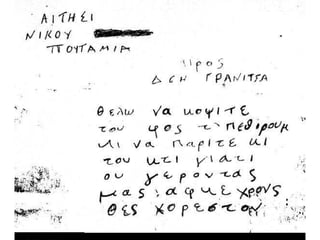 ΑΙΤΗΣΙ
ΝΙΚΟΥ
ΠΟΥΤΑΜΙΑ
Προς
ΔΕΗ ΓΡΑΝΙΤΣΑ
θελω να κοψιτε
του φος τ πεθιρουμ
κι να παριτε κι
του κτι γιατι
ου γεροντας
μας αφκε χρονς
θες χορεστον